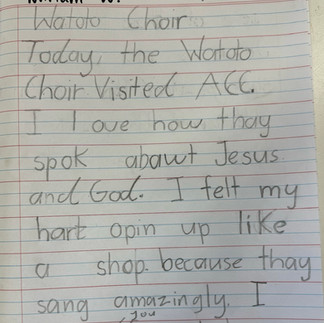 Watoto Choir
Today, the Watoto
Choir Visited ACC.
I love how thay
spok abawt Jesus
and God. I felt my
hart opin up like
a shop. because thay
sang amazingly. I
you